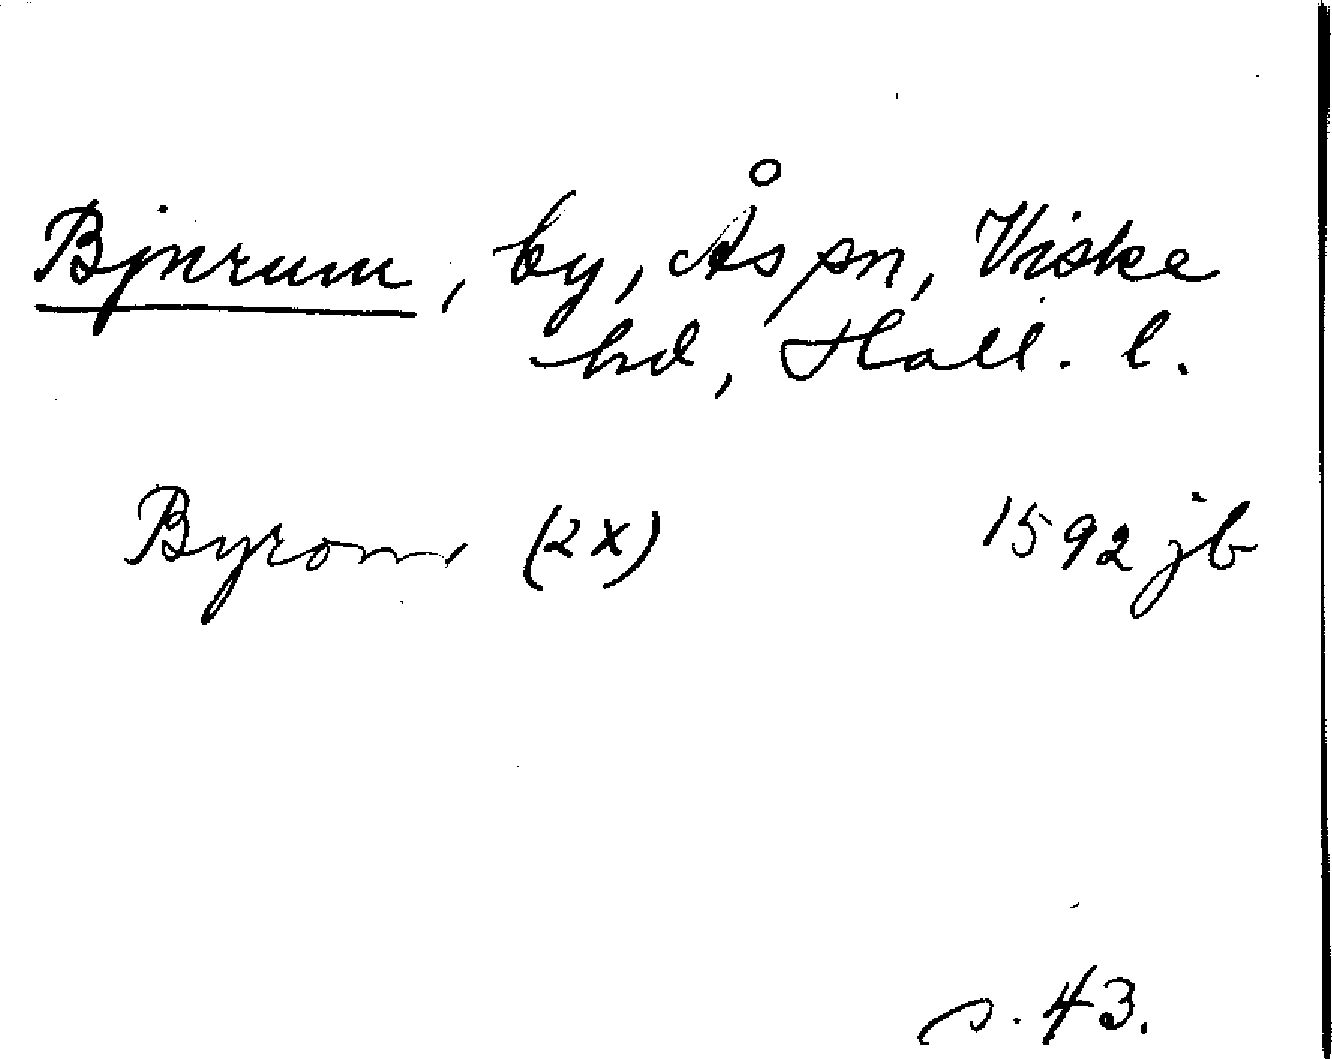 Bjnrum, by, Ås sn, Viske
hd, Hall. l.
Byrom (2x) 1592 jb
s. 43.